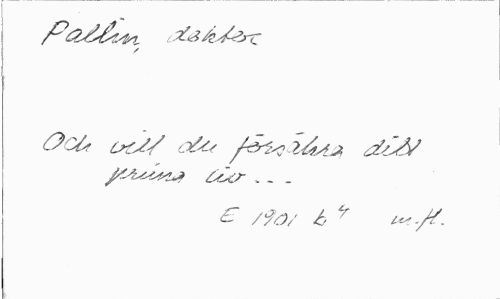 Pallin, doktor
Och vill du försäkra ditt
prima liv ---
E 1901 b 4 m.fl.